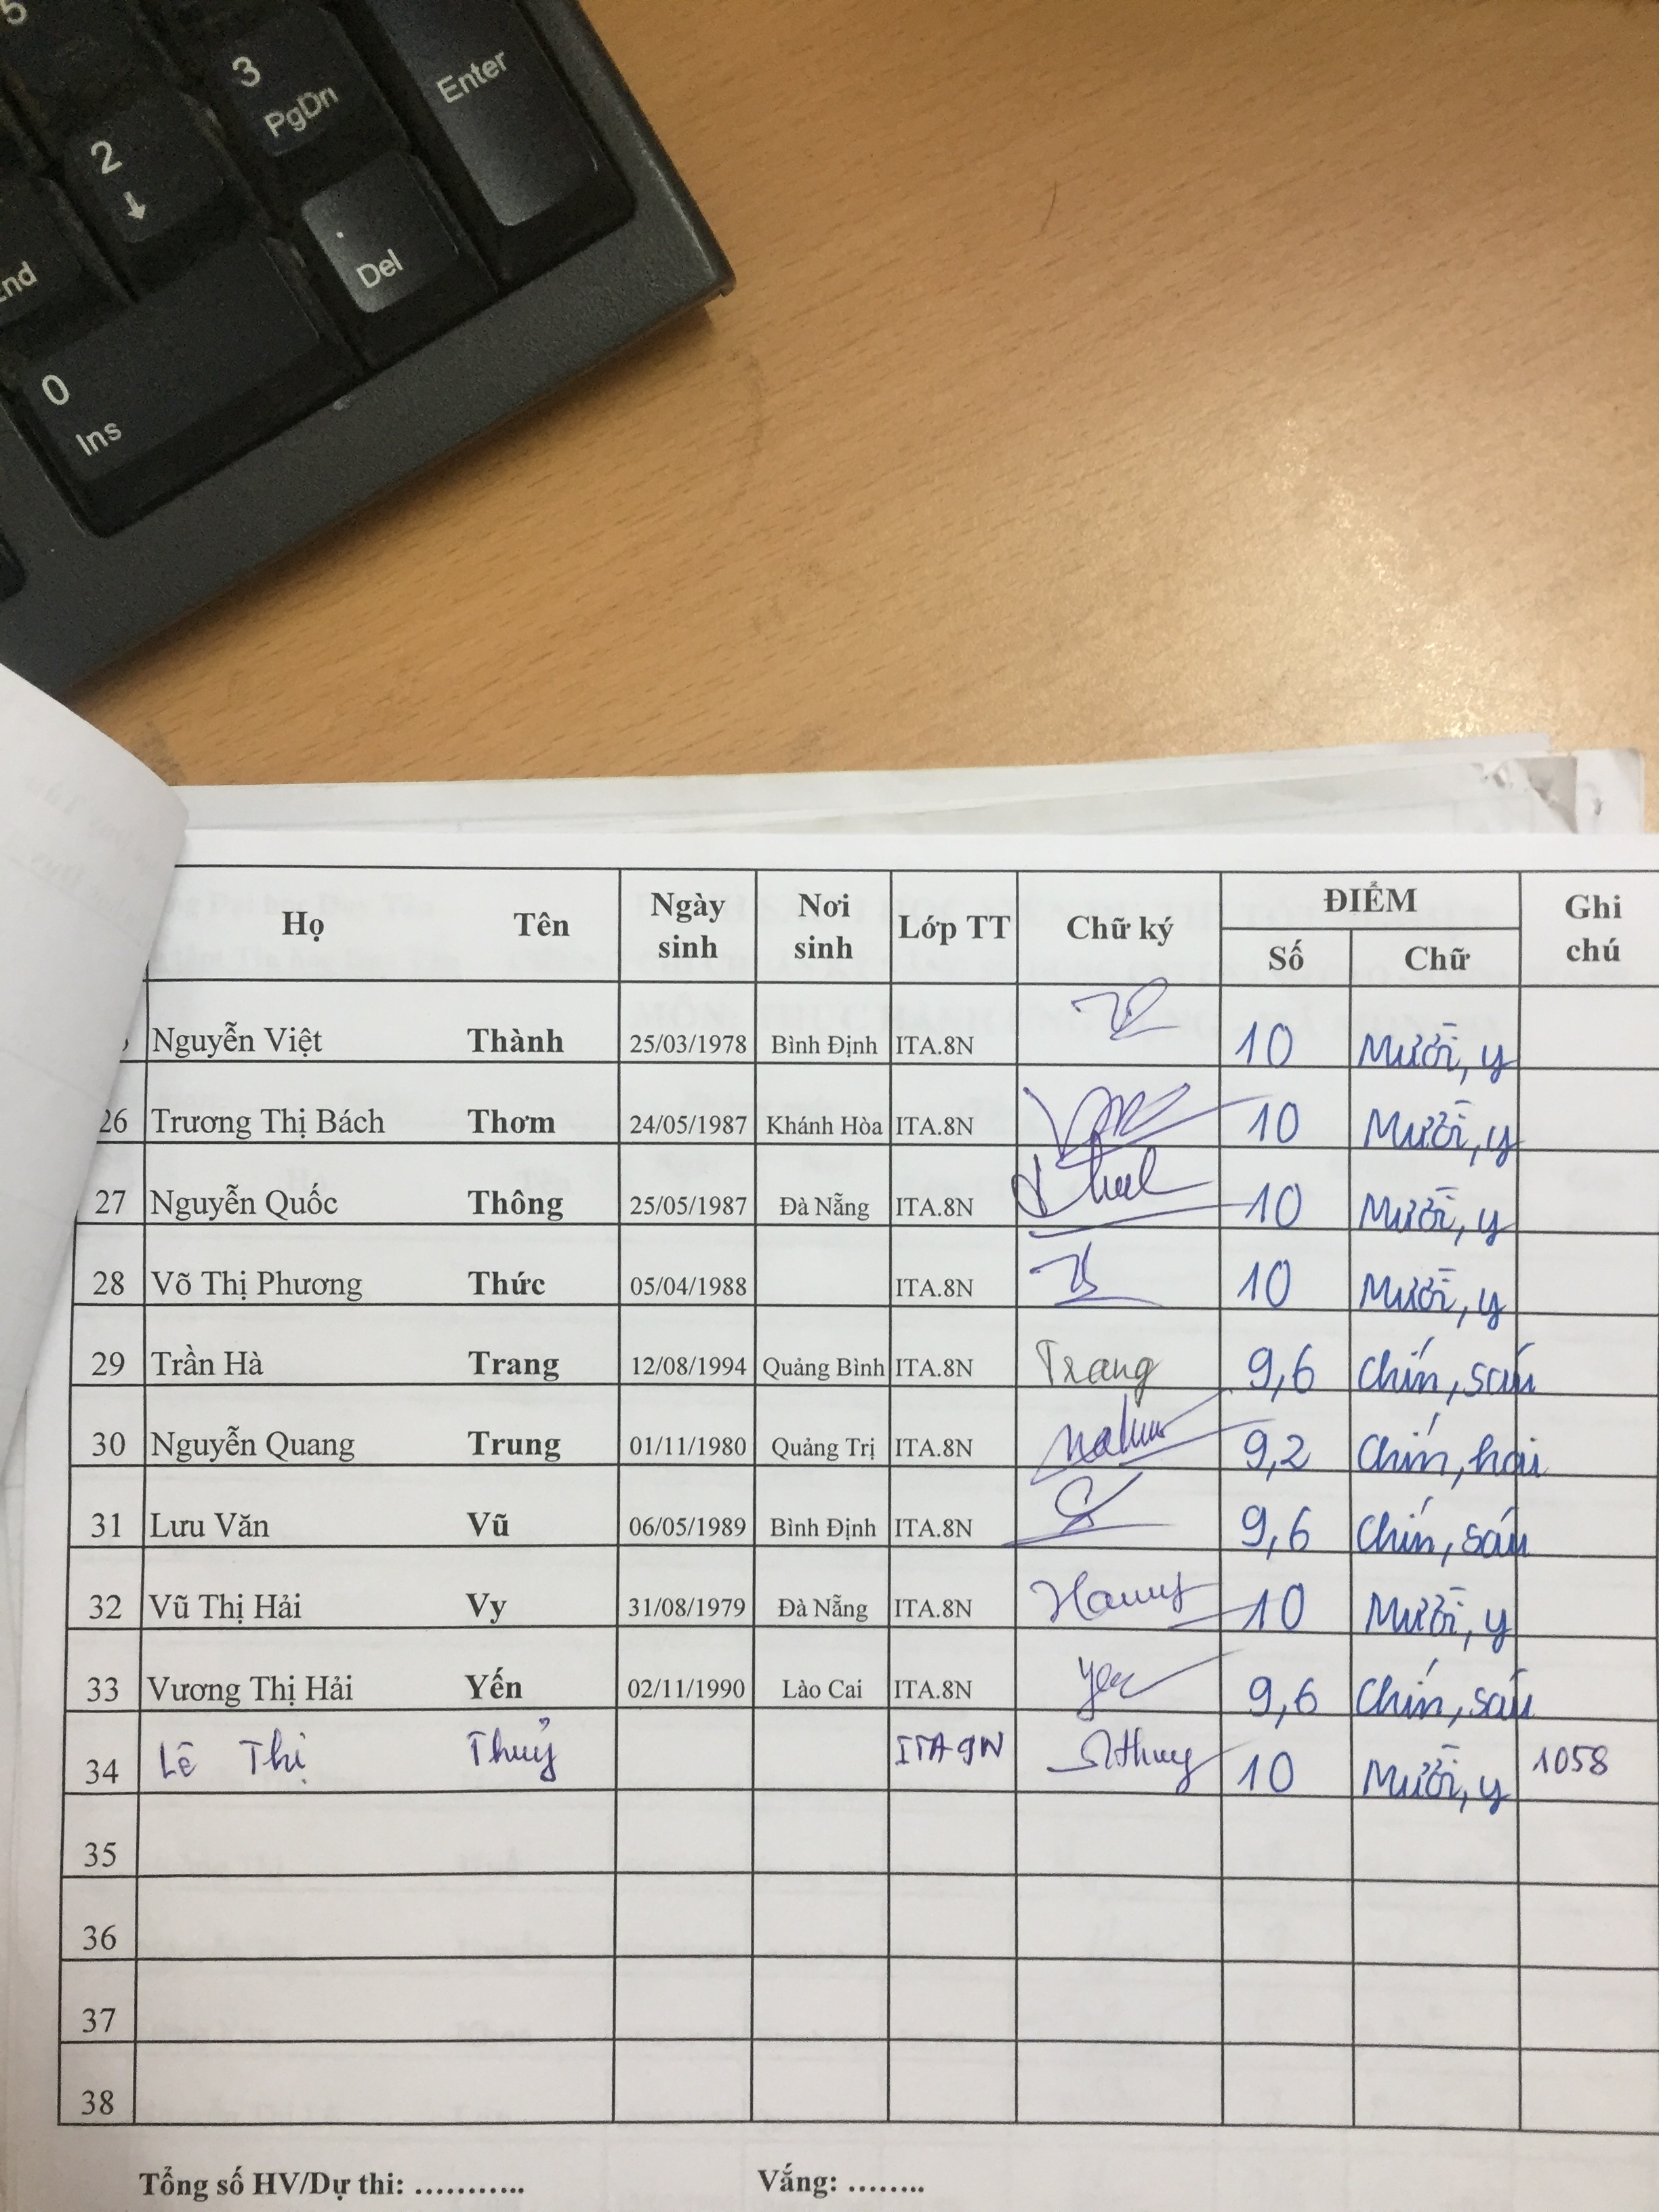 5
3
PgDn
Enter
2
↓
.
Del
End
0
Ins
Họ Tên Ngày sinh Nơi sinh Lớp TT Chữ ký ĐIỂM Ghi chú
Số Chữ
Nguyễn Việt Thành 25/03/1978 Bình Định ITA.8N 10 Mười, y
26 Trương Thị Bách Thơm 24/05/1987 Khánh Hòa ITA.8N 10 Mười, y
27 Nguyễn Quốc Thông 25/05/1987 Đà Nẵng ITA.8N 10 Mười, y
28 Võ Thị Phương Thức 05/04/1988 ITA.8N 10 Mười, y
29 Trần Hà Trang 12/08/1994 Quảng Bình ITA.8N Trang 9,6 Chín, sáu
30 Nguyễn Quang Trung 01/11/1980 Quảng Trị ITA.8N 9,2 Chín, hai
31 Lưu Văn Vũ 06/05/1989 Bình Định ITA.8N 9,6 Chín, sáu
32 Vũ Thị Hải Vy 31/08/1979 Đà Nẵng ITA.8N 10 Mười, y
33 Vương Thị Hải Yến 02/11/1990 Lào Cai ITA.8N 9,6 Chín, sáu
34 Lê Thị Thuỷ ITA 9N 10 Mười, y 1058
35
36
37
38
Tổng số HV/Dự thi: ........... Vắng: ........